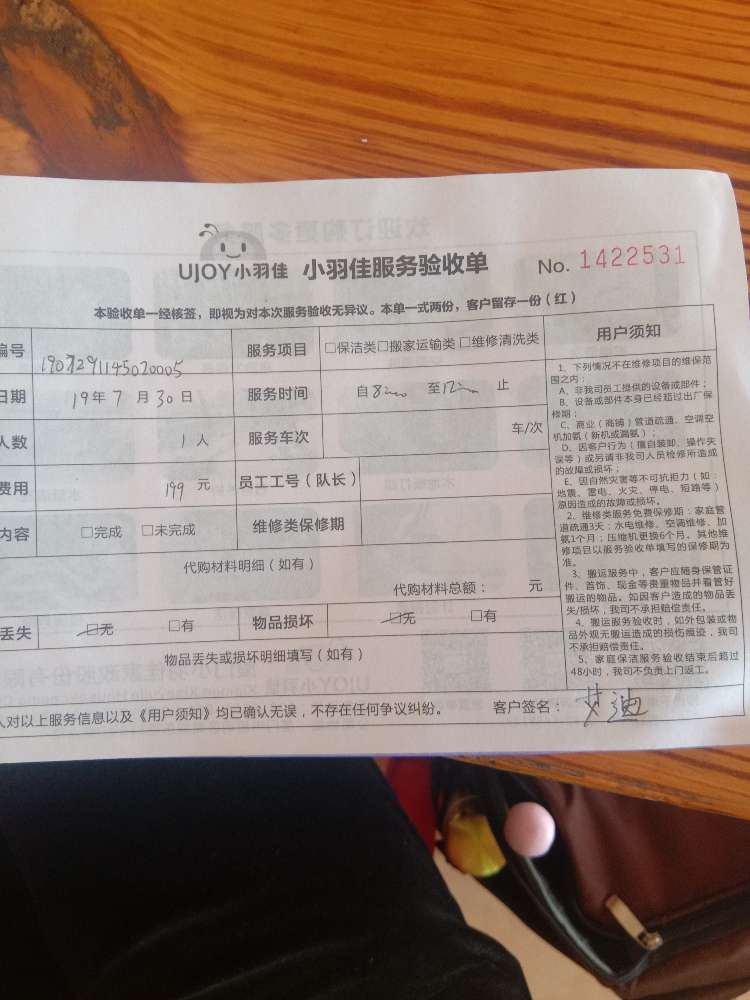 UJOY小羽佳 小羽佳服务验收单 No. 1422531
本验收单一经核签，即视为对本次服务验收无异议。本单一式两份，客户留存一份（红）
编号 1907291145020005 服务项目 □保洁类□搬家运输类□维修清洗类
日期 19年7月30日 服务时间 自8:00 至12:00 止
人数 1人 服务车次 车/次
费用 199元 员工工号（队长）
内容 □完成 □未完成 维修类保修期
代购材料明细（如有）
代购材料总额： 元
丢失 □无 □有 物品损坏 □无 □有
物品丢失或损坏明细填写（如有）
人对以上服务信息以及《用户须知》均已确认无误，不存在任何争议纠纷。 客户签名：艾迪
用户须知
1、下列情况不在维修项目的维保范
围之内：
A、非我司员工提供的设备或部件；
B、设备或部件本身已经超过出厂保
修期；
C、商业（商铺）管道疏通、空调空
机加氨（新机或漏氨）；
D、因客户行为（擅自装卸、操作失
误等）或另请非我司人员检修所造成
的故障或损坏；
E、因自然灾害等不可抗拒力（如：
地震、雷电、火灾、停电、短路等）
原因造成的故障或损坏。
2、维修类服务免费保修期：家庭管
道疏通3天；水电维修、空调维修、加
氨1个月；压缩机更换6个月。其他维
修项目以服务验收单填写的保修期为
准。
3、搬运服务中，客户应随身保管证
件、首饰、现金等贵重物品并看管好
搬运的物品。如因客户造成的物品丢
失/损坏，我司不承担赔偿责任。
4、搬运服务验收时，如外包装或物
品外观无搬运造成的损伤痕迹，我司
不承担赔偿责任。
5、家庭保洁服务验收结束后超过
48小时，我司不负责上门返工。